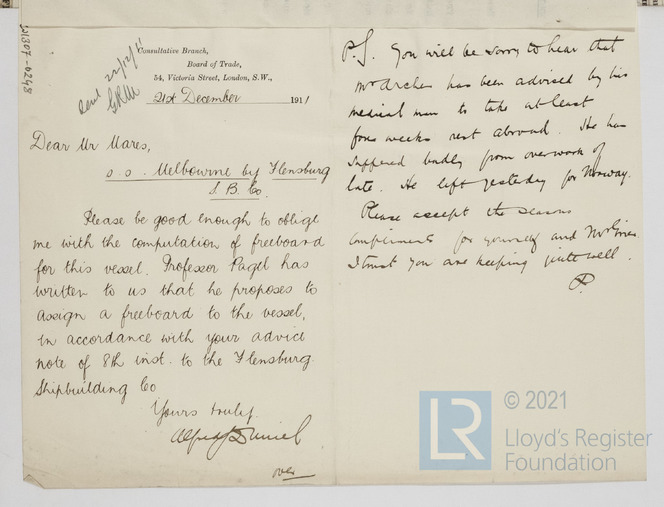 W1307-0248
Sent 22/12/11
GRM
Consultative Branch,
Board of Trade,
54, Victoria Street, London, S.W.,
21st December 1911
Dear Mr Mares,
s.s. Melbourne by Flensburg
S. B. Co.
Please be good enough to oblige
me with the computation of freeboard
for this vessel. Professor Pagel has
written to us that he proposes to
assign a freeboard to the vessel,
in accordance with your advice
note of 8th inst. to the Flensburg
Shipbuilding Co
Yours truly.
Alfred J Daniel
over
P.S. You will be sorry to hear that
Mr Archer has been advised by his
medical man to take at least
four weeks rest abroad. He has
suffered badly from overwork of
late. He left yesterday for Norway.
Please accept the seasons
compliments for yourself and Mrs
I trust you are keeping quite well.
D.
LR
© 2021
Lloyd's Register
Foundation